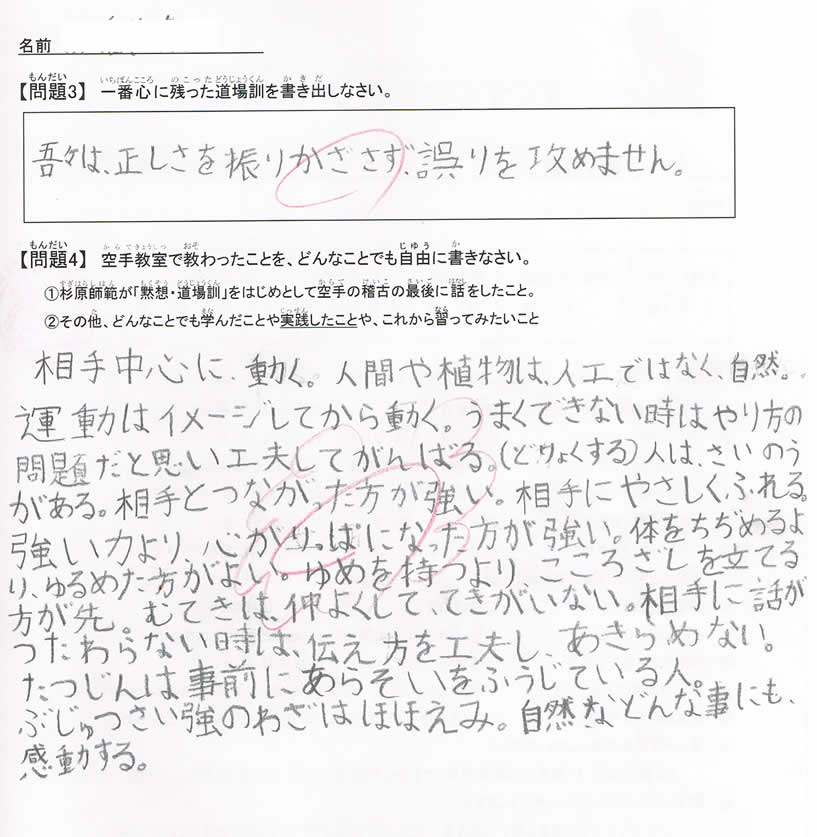 名前
もんだい いちばんこころ のこった どうじょうくん かきだ
【問題3】 一番心に残った道場訓を書き出しなさい。
吾々は、正しさを振りかざさず、誤りを攻めません。
もんだい からてきょうしつ おそ じゆう か
【問題4】 空手教室で教わったことを、どんなことでも自由に書きなさい。
すぎはらしはん もくそう どうじょうくん からて けいこ さいご はなし
①杉原師範が「黙想・道場訓」をはじめとして空手の稽古の最後に話をしたこと。
た まな じっせん なら
②その他、どんなことでも学んだことや実践したことや、これから習ってみたいこと
相手中心に、動く。人間や植物は、人工ではなく、自然。
運動はイメージしてから動く。うまくできない時はやり方の
問題だと思い工夫してがんばる。(どりょくする)人は、さいのう
がある。相手とつながった方が強い。相手にやさしくふれる。
強い力より、心がりっぱになった方が強い。体をちぢめるよ
り、ゆるめた方がよい。ゆめを持つより、こころざしを立てる
方が先。むてきは、仲よくして、てきがいない。相手に話が
つたわらない時は、伝え方を工夫し、あきらめない。
たつじんは事前にあらそいをふうじている人。
ぶじゅつさい強のわざはほほえみ。自然などんな事にも、
感動する。